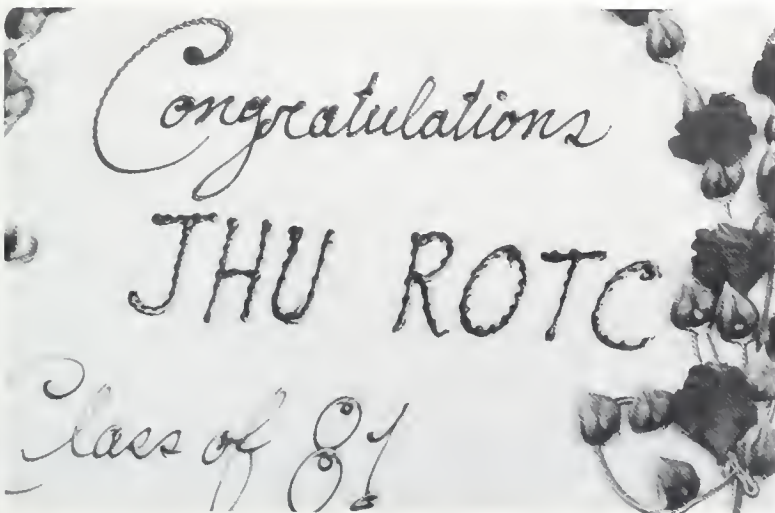 Congratulations
JHU ROTC
Class of 81